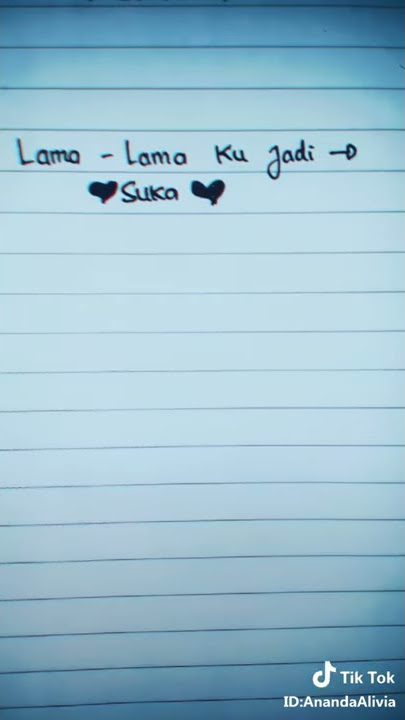 Lama - Lama Ku Jadi →
♥ Suka ♥
Tik Tok
ID:AnandaAlivia